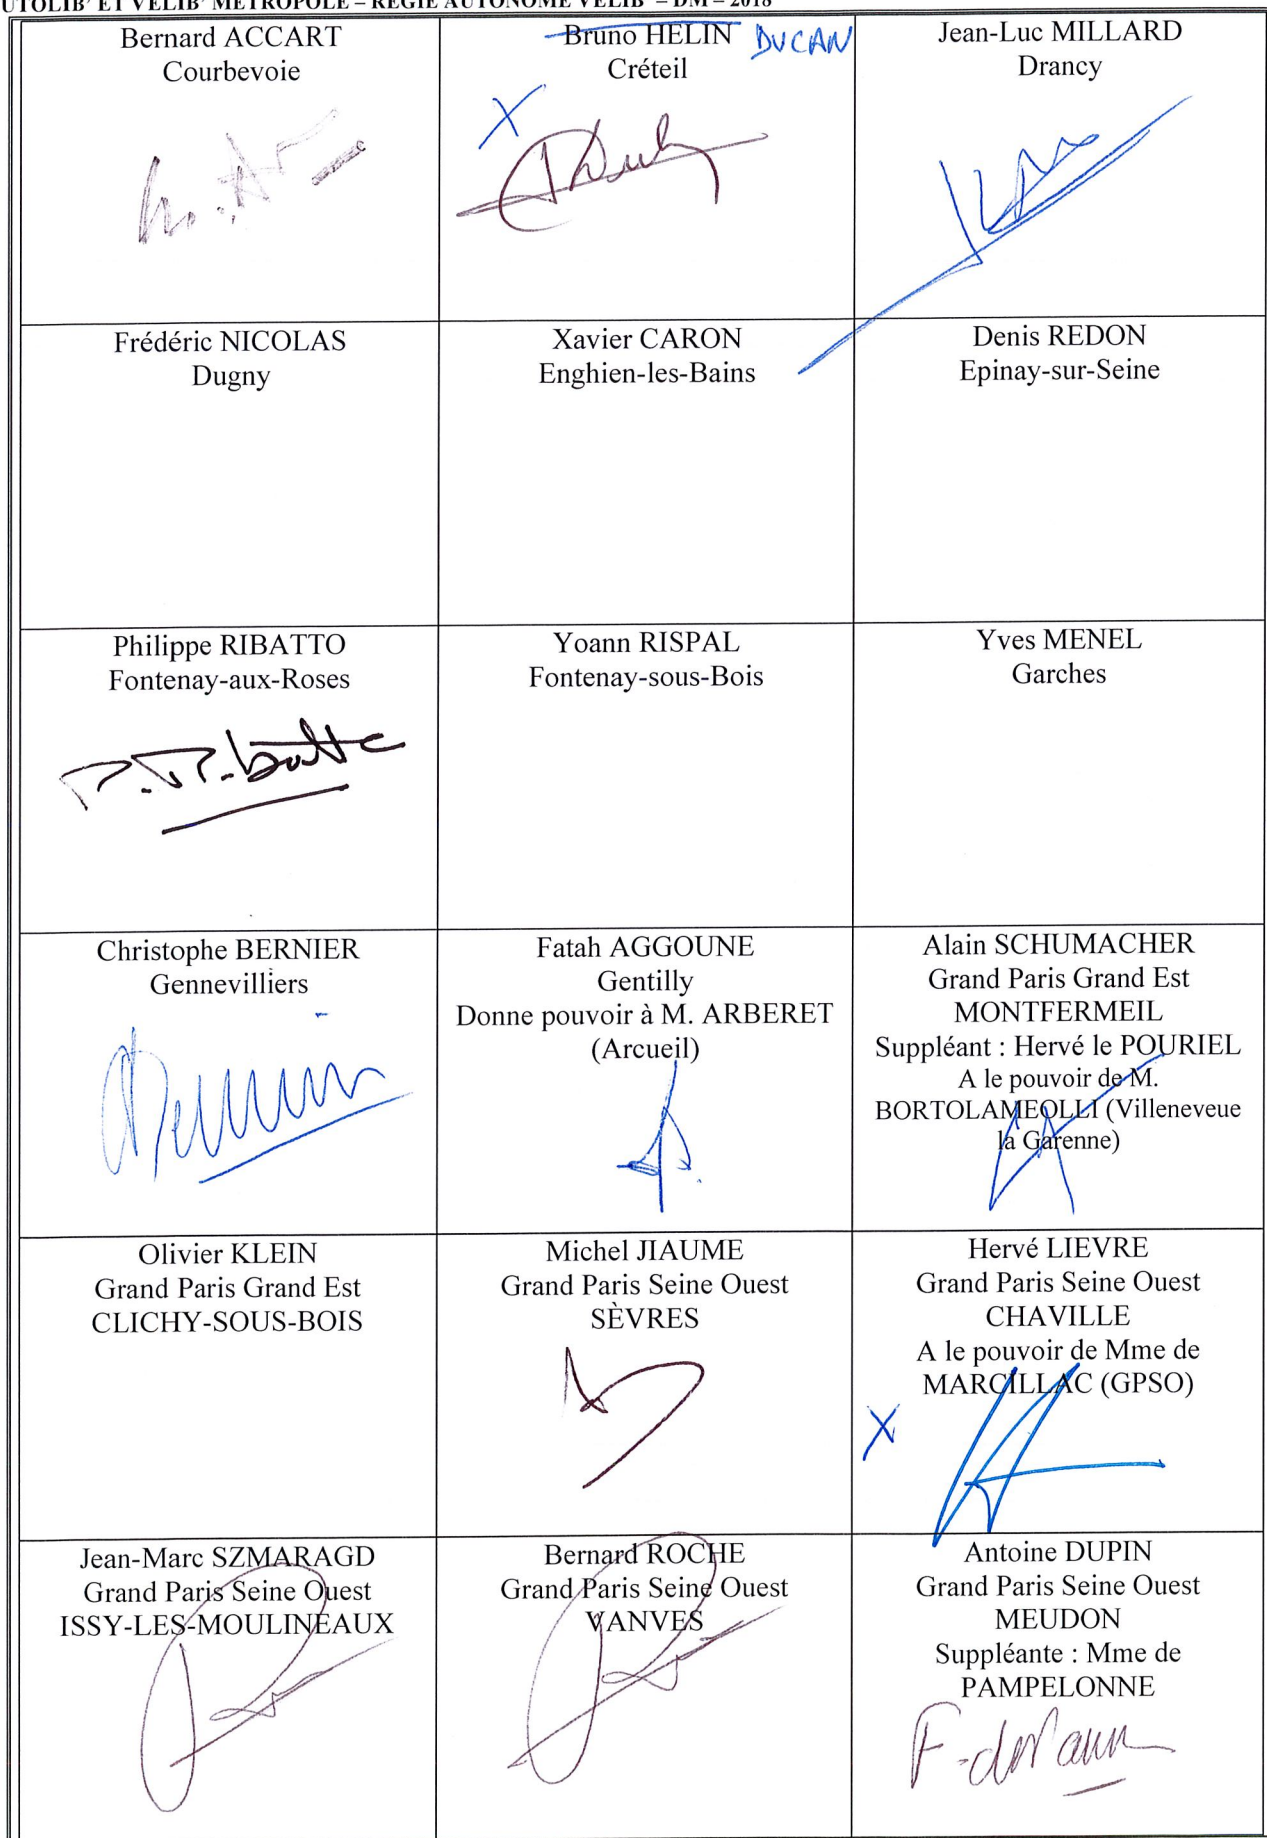 UTOLIB' ET VELIB' METROPOLE – REGIE AUTONOME VELIB' – DM – 2018
Bernard ACCART
Courbevoie
Bruno HELIN DUCAN
Créteil
X
Jean-Luc MILLARD
Drancy
Frédéric NICOLAS
Dugny
Xavier CARON
Enghien-les-Bains
Denis REDON
Epinay-sur-Seine
Philippe RIBATTO
Fontenay-aux-Roses
P. Ribatto
Yoann RISPAL
Fontenay-sous-Bois
Yves MENEL
Garches
Christophe BERNIER
Gennevilliers
Fatah AGGOUNE
Gentilly
Donne pouvoir à M. ARBERET
(Arcueil)
Alain SCHUMACHER
Grand Paris Grand Est
MONTFERMEIL
Suppléant : Hervé le POURIEL
A le pouvoir de M.
BORTOLAMEOLLI (Villeneveue
la Garenne)
Olivier KLEIN
Grand Paris Grand Est
CLICHY-SOUS-BOIS
Michel JIAUME
Grand Paris Seine Ouest
SÈVRES
Hervé LIEVRE
Grand Paris Seine Ouest
CHAVILLE
A le pouvoir de Mme de
MARCILLAC (GPSO)
X
Jean-Marc SZMARAGD
Grand Paris Seine Ouest
ISSY-LES-MOULINEAUX
Bernard ROCHE
Grand Paris Seine Ouest
VANVES
Antoine DUPIN
Grand Paris Seine Ouest
MEUDON
Suppléante : Mme de
PAMPELONNE